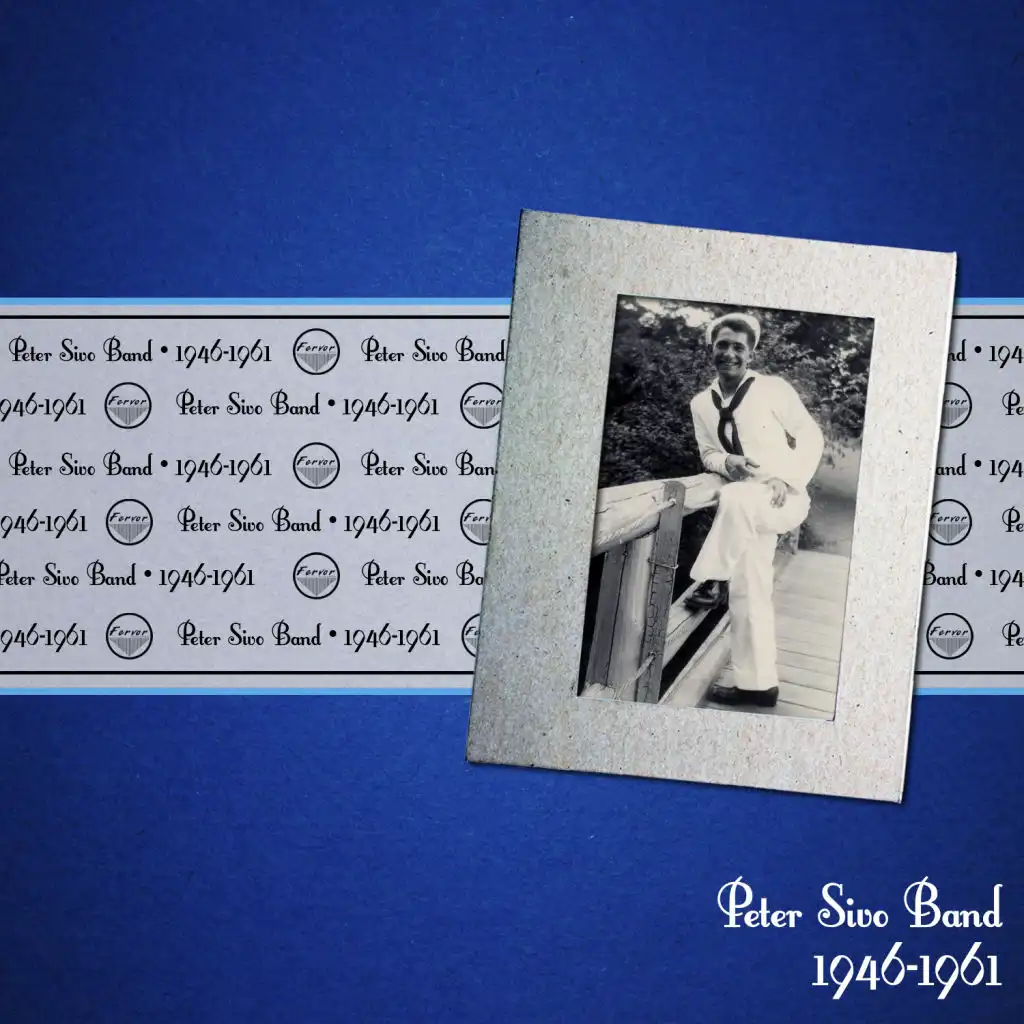 Peter Sivo Band • 1946-1961 Fervor Peter Sivo Band nd • 194
946-1961 Fervor Peter Sivo Band • 1946-1961 Fervor Fervor Pe
Peter Sivo Band • 1946-1961 Fervor Peter Sivo Ban and • 194
946-1961 Fervor Peter Sivo Band • 1946-1961 Ferv Fervor Pe
Peter Sivo Band • 1946-1961 Fervor Peter Sivo Ba Band • 194
946-1961 Fervor Peter Sivo Band • 1946-1961 Fe Fervor Pe
Peter Sivo Band
1946-1961